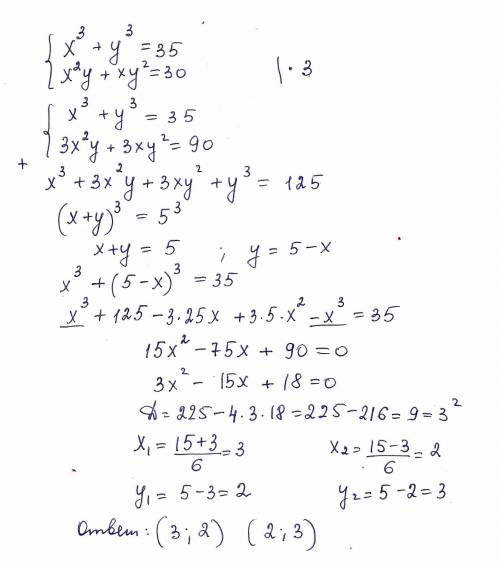 x³ + y³ = 35
x²y + xy² = 30 | · 3
x³ + y³ = 35
3x²y + 3xy² = 90
+
x³ + 3x²y + 3xy² + y³ = 125
(x+y)³ = 5³
x+y = 5 ; y = 5 − x
x³ + (5 − x)³ = 35
x³ + 125 − 3·25x + 3·5·x² − x³ = 35
15x² − 75x + 90 = 0
3x² − 15x + 18 = 0
D = 225 − 4·3·18 = 225 − 216 = 9 = 3²
x₁ = (15+3)/6 = 3 x₂ = (15−3)/6 = 2
y₁ = 5 − 3 = 2 y₂ = 5 − 2 = 3
Ответ: (3; 2) (2; 3)